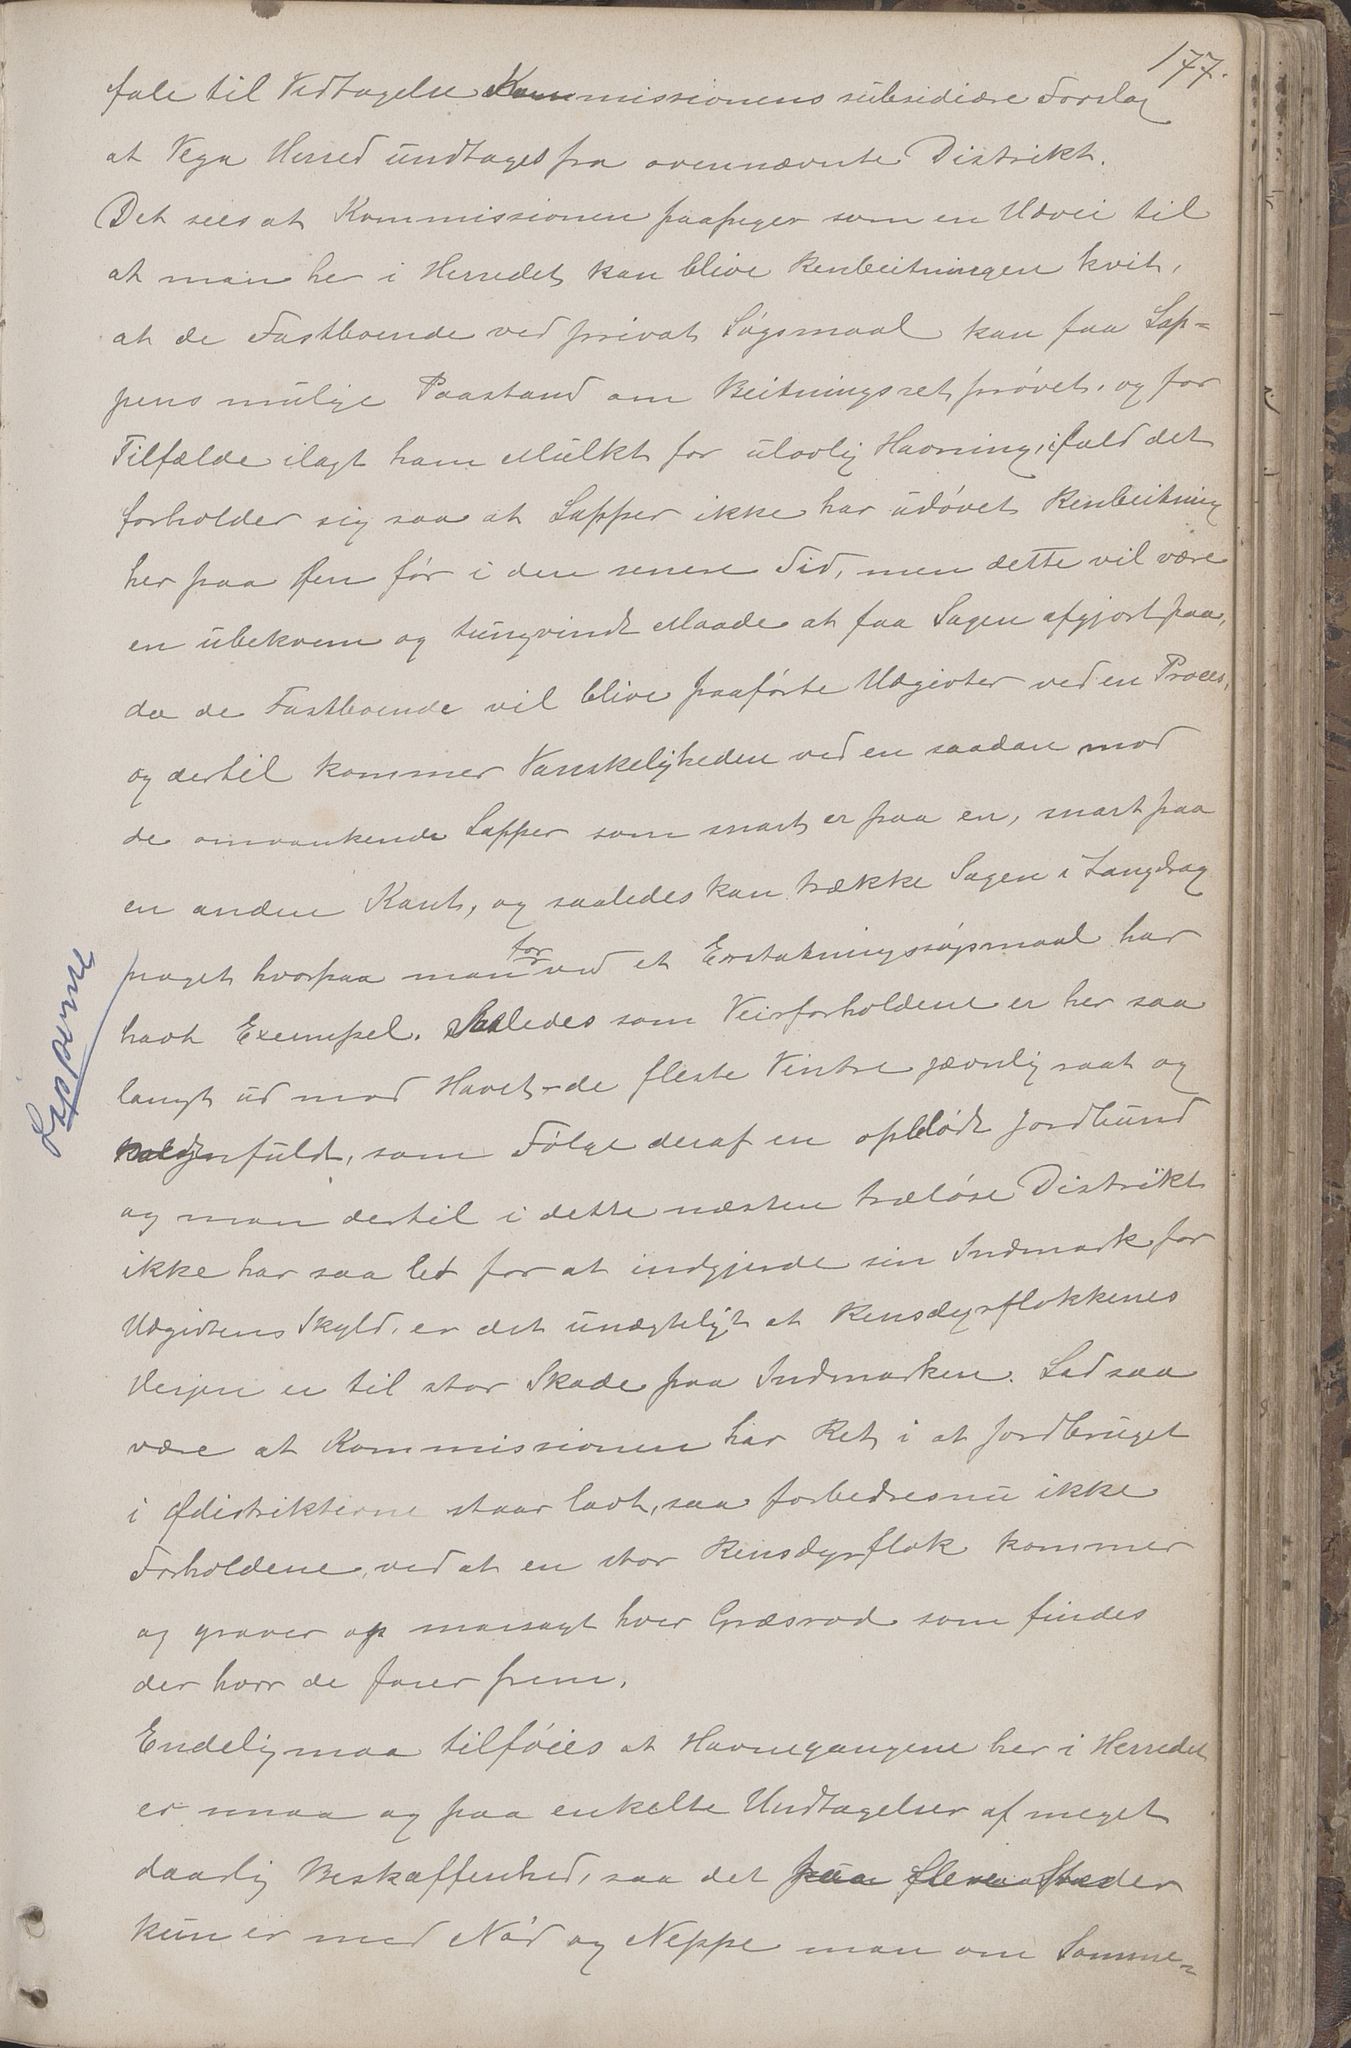 177.
fale til Vedtagelse Kommissionens subsidiære Forslag
at Vega Herred undtages fra ovennævnte Distrikt.
Det sees at Kommissionen paapeger som en Udvei til
at man her i Herredet kan blive Renbeitningen kvit,
at de Fastboende ved privat Søgsmaal kan faa Lap-
pens mulige Paastand om Beitningsret prøvet, og for
Tilfælde ilagt ham Mulkt for ulovlig Havning, ifald det
forholder sig saa at Lapper ikke har udøvet Renbeitning
her paa Øen før i den senere Tid, men dette vil være
en ubekvem og tungvindt Maade at faa Sagen afgjort paa,
da de Fastboende vil blive paaførte Udgivter ved en Proces,
og dertil kommer Vanskeligheden ved en saadan mod
de omvankende Lapper som snart er paa en, snart paa
en anden Kant, og saaledes kan trække Sagen i Langdrag
noget hvorpaa man før ved et Erstatningssøgsmaal har
havt Exempel. Saaledes som Veirforholdene er her saa
langt ud mod Havet - de fleste Vintre jævnlig raat og
regnfuldt, som Følge deraf en opblødt Jordbund
og man dertil i dette næsten træløse Distrikt
ikke har saa let for at indgjerde sin Indmark for
Udgivtens Skyld, er det unægteligt at Rensdyrflokkenes
Herjen er til stor Skade paa Indmarken. Lad saa
være at Kommissionen har Ret i at Jordbruget
i Ødistrikterne staar lavt, saa forbedres nu ikke
Forholdene, ved at en stor Rensdyrflok kommer
og graver op snarsagt hver Græsrod som findes
der hvor de farer frem.
Endelig maa tilføies at Havnegangene her i Herredet
er smaa og paa enkelte Undtagelser af meget
daarlig Beskaffenhed, saa det paa flere Steder
kun er med Nød og Neppe man om Somme-
Lapperne